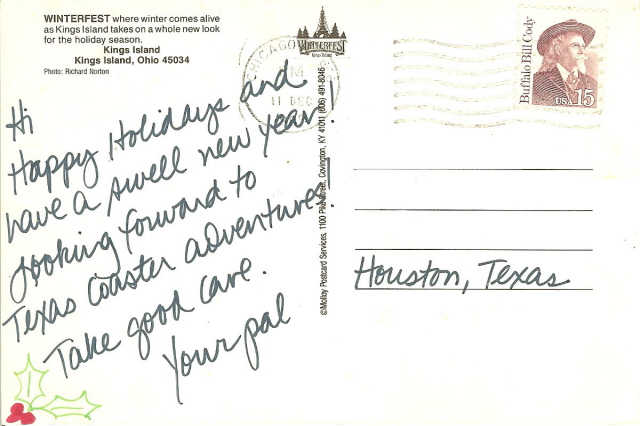 WINTERFEST where winter comes alive
as Kings Island takes on a whole new look
for the holiday season.
Kings Island
Kings Island, Ohio 45034
Photo: Richard Norton
WINTERFEST
Kings Island
CHICAGO
PM
11 DEC
Buffalo Bill Cody
USA 15
Hi
Happy Holidays and
have a swell new year.
Looking forward to
Texas Coaster adventures.
Take good care.
Your pal
©Molloy Postcard Services, 1100 Pike Street, Covington, KY 41011 (606) 491-8046
Houston, Texas